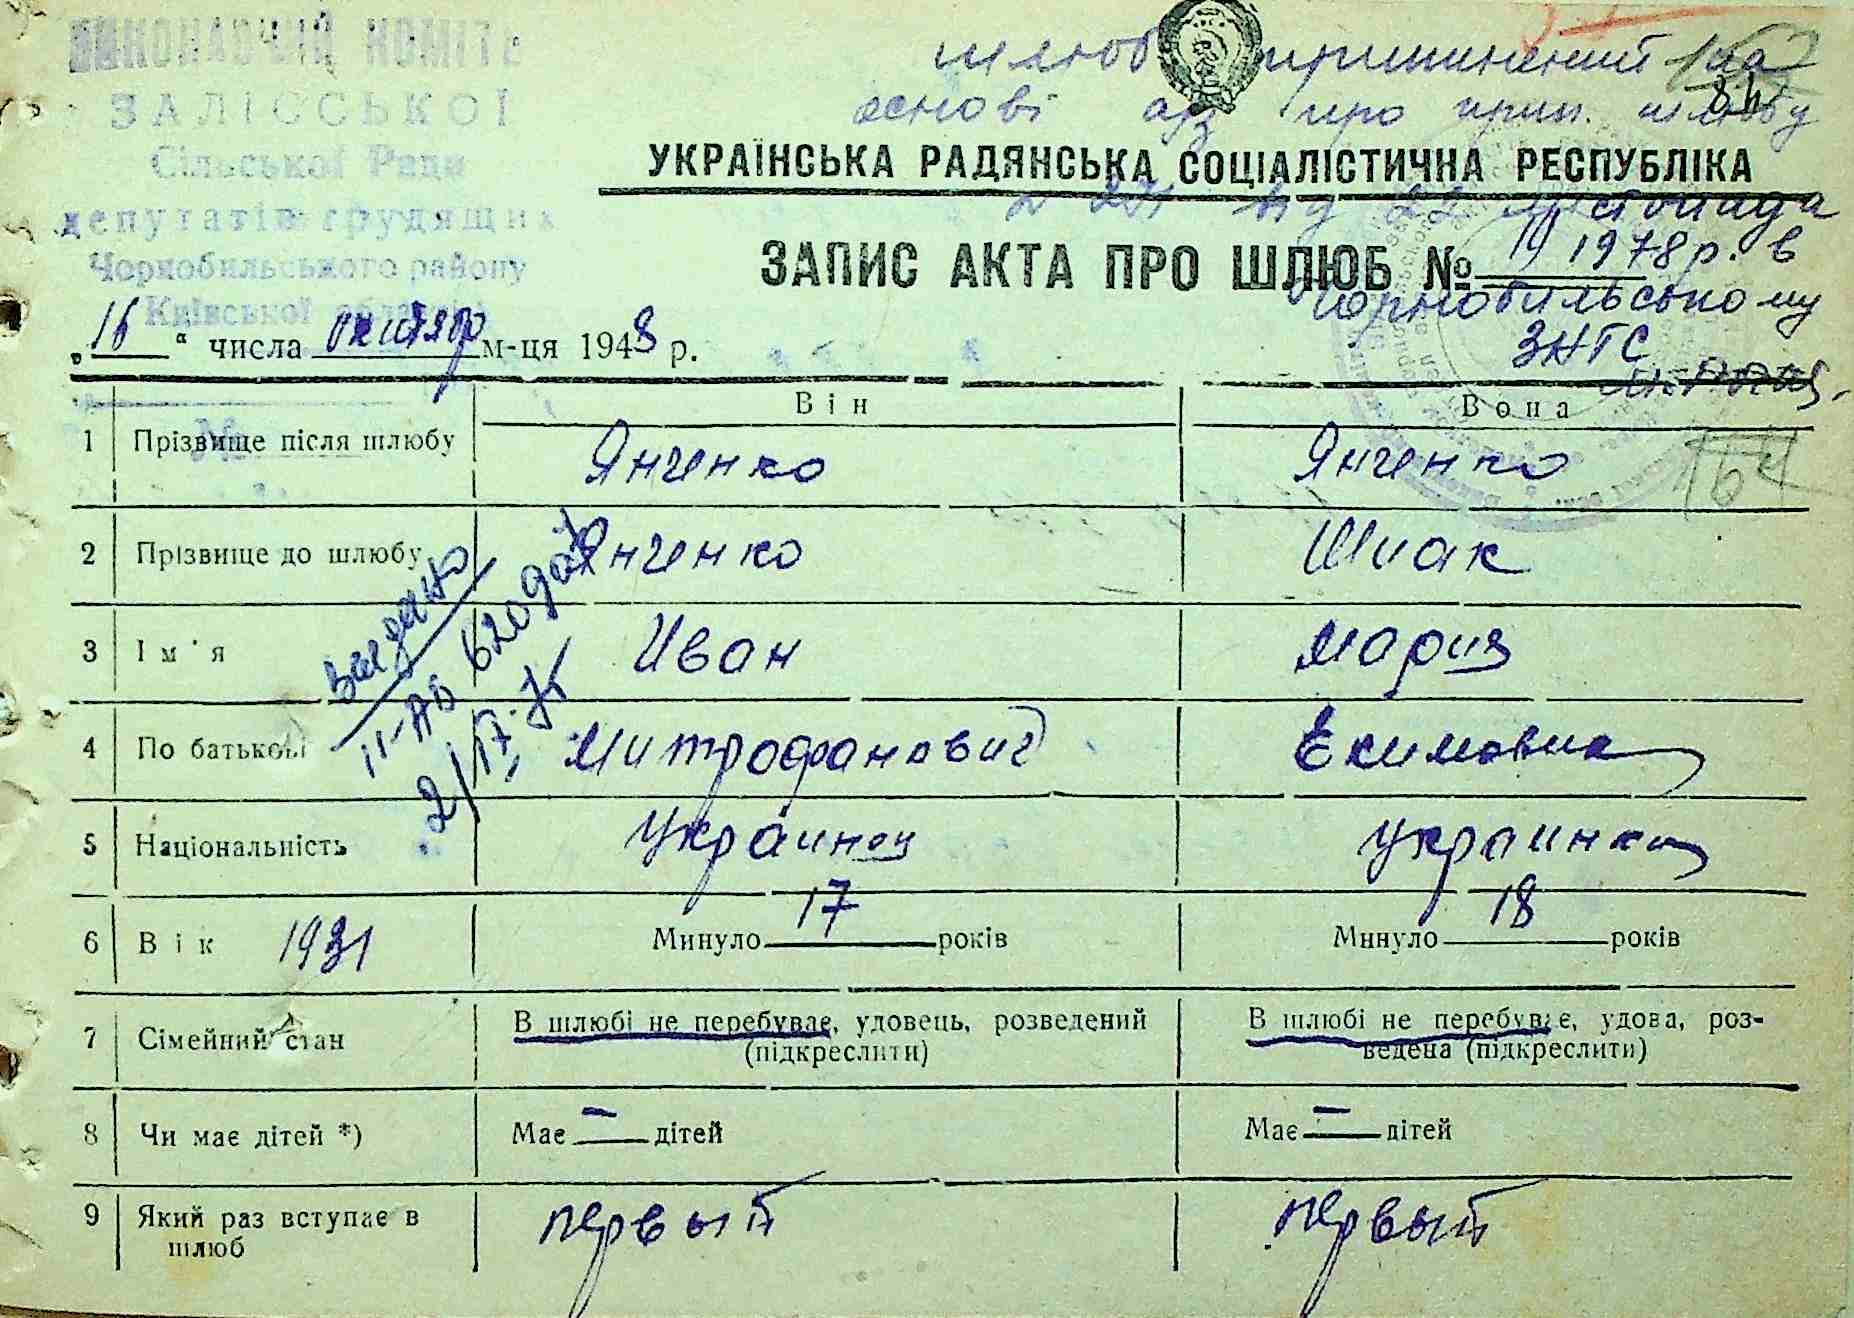 ВИКОНАВЧИЙ КОМІТЕ
ЗАЛІССЬКОЇ
Сільської Ради
депутатів трудящих
Чорнобильського району
Київської області
шлюб припинений на
основі а/з про прип. шлюбу
УКРАЇНСЬКА РАДЯНСЬКА СОЦІАЛІСТИЧНА РЕСПУБЛІКА
№ 271 від 22 листопада
ЗАПИС АКТА ПРО ШЛЮБ № 19
1978 р. в
Чорнобильському
ЗАГС
„16“ числа октября м-ця 1948 р.
Він Вона
1 Прізвище після шлюбу Янченко Янченко
164
2 Прізвище до шлюбу Янченко Шпак
3 Ім'я Иван Мария
4 По батькові Митрофанович Екимовна
видано
II-АБ
5 Національність Украинец украинка
6 Вік 1931 Минуло 17 років Минуло 18 років
7 Сімейний стан В шлюбі не перебуває, удовець, розведений (підкреслити) В шлюбі не перебуває, удова, роз-
ведена (підкреслити)
8 Чи має дітей *) Має — дітей Має — дітей
9 Який раз вступає в шлюб первый первый